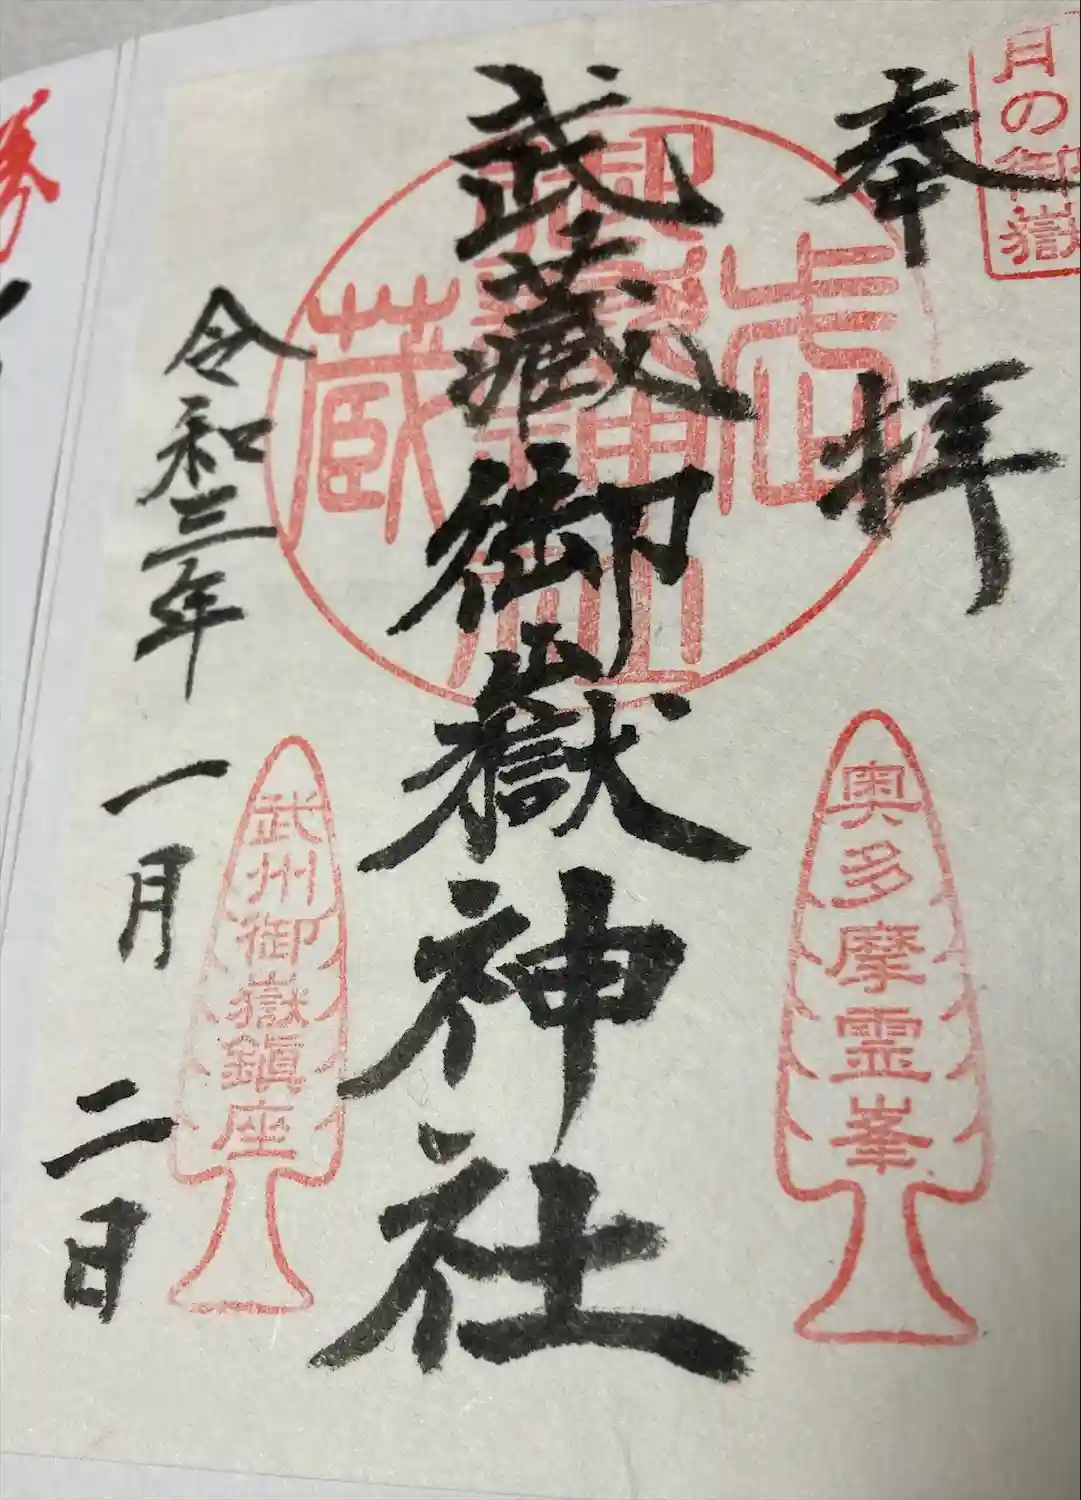 月の御嶽
奉拝
奥多摩霊峯
武蔵御嶽神社
武蔵御嶽神社
武州御嶽鎮座
令和三年一月二日